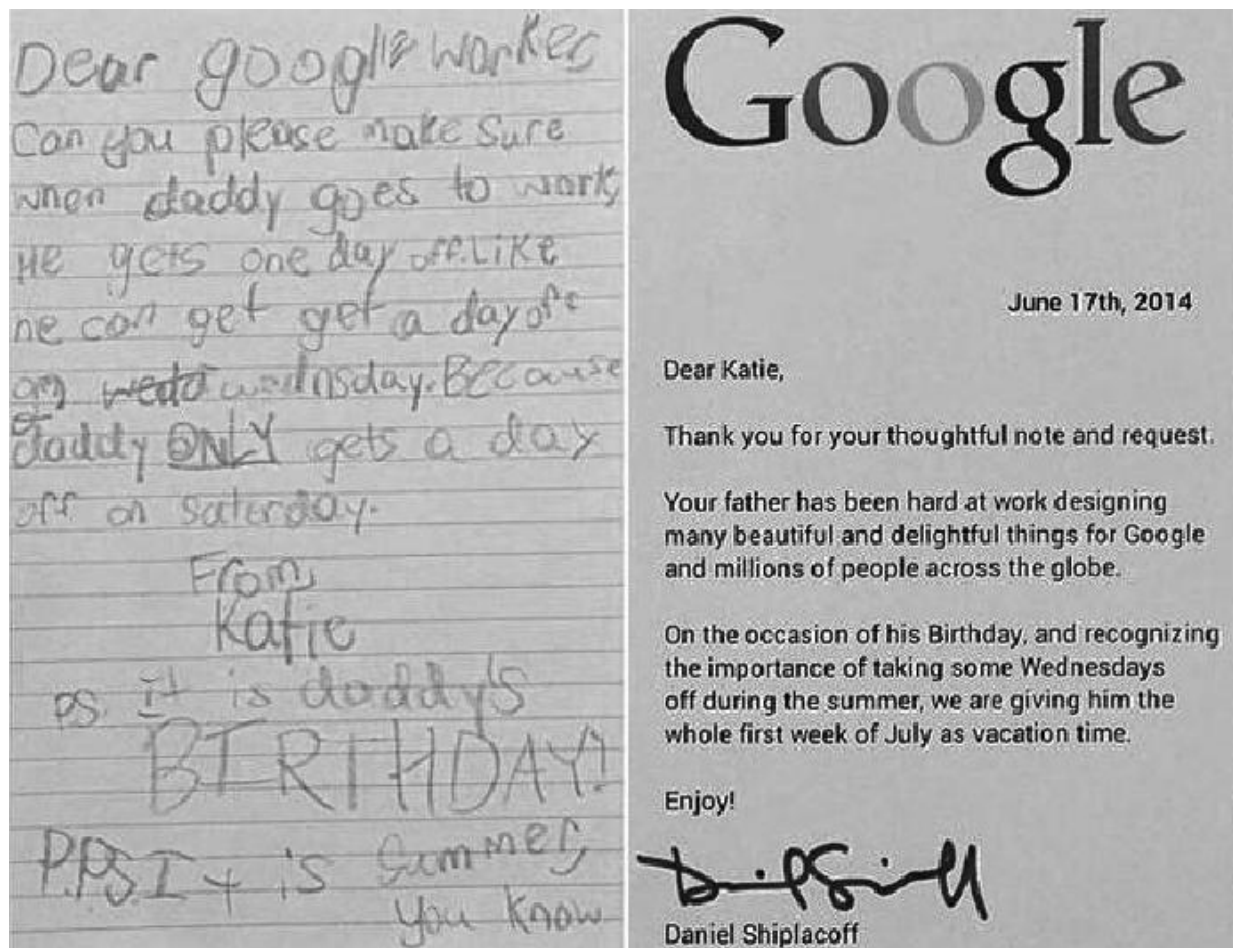 Dear google worker
Can you please make sure
when daddy goes to work,
He gets one day off. Like
he can get get a day off
on wedo wednsday. Because
daddy ONLY gets a day
off on saterday.
From,
Katie
PS. it is daddy's
BIRTHDAY!
P.P.S. It is Summer,
you know
Google
June 17th, 2014
Dear Katie,
Thank you for your thoughtful note and request.
Your father has been hard at work designing
many beautiful and delightful things for Google
and millions of people across the globe.
On the occasion of his Birthday, and recognizing
the importance of taking some Wednesdays
off during the summer, we are giving him the
whole first week of July as vacation time.
Enjoy!
Daniel Shiplacoff